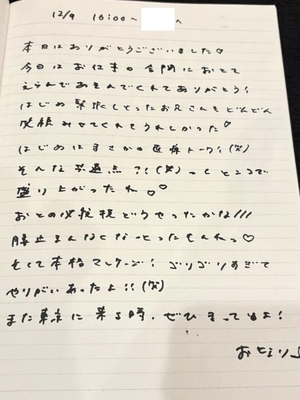 12/9 16:00~ へ
本日はありがとうございました♡
今日はお仕事の合間におとて
えらんであそんでくれてありがとう!
はじめ緊張してったお兄さんもどんどん
笑顔みせてくれてうれしかった♡
はじめはまさかの医療トーク!(笑)
そんな共通点?!(笑)ってところで
盛り上がったね♡♡
おとの
どうやったかな///
腰止まんなくなっとったもんねっ♡
そして本格マッサージ!ごりごりすぎて
やりがいあったよ!!(笑)
また東京に来る時、ぜひまってるよ!
おと